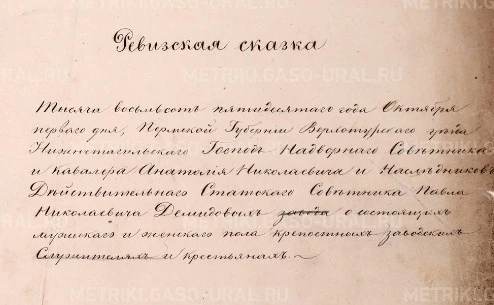 Ревизская сказка
Тысяча восемьсотъ пятидесятаго года Октября
перваго дня, Пермской Губерніи Верхотурскаго уѣзда
Нижнетагильскаго Господъ Надворнаго Совѣтника
и Кавалера Анатолія Николаевича и Наслѣдниковъ
Дѣйствительнаго Статскаго Совѣтника Павла
Николаевича Демидовыхъ завода о состоящихъ
мужскаго и женскаго пола крепостныхъ заводскихъ
Служителяхъ и крестьянахъ.
METRIKI.GASO-URAL.RU